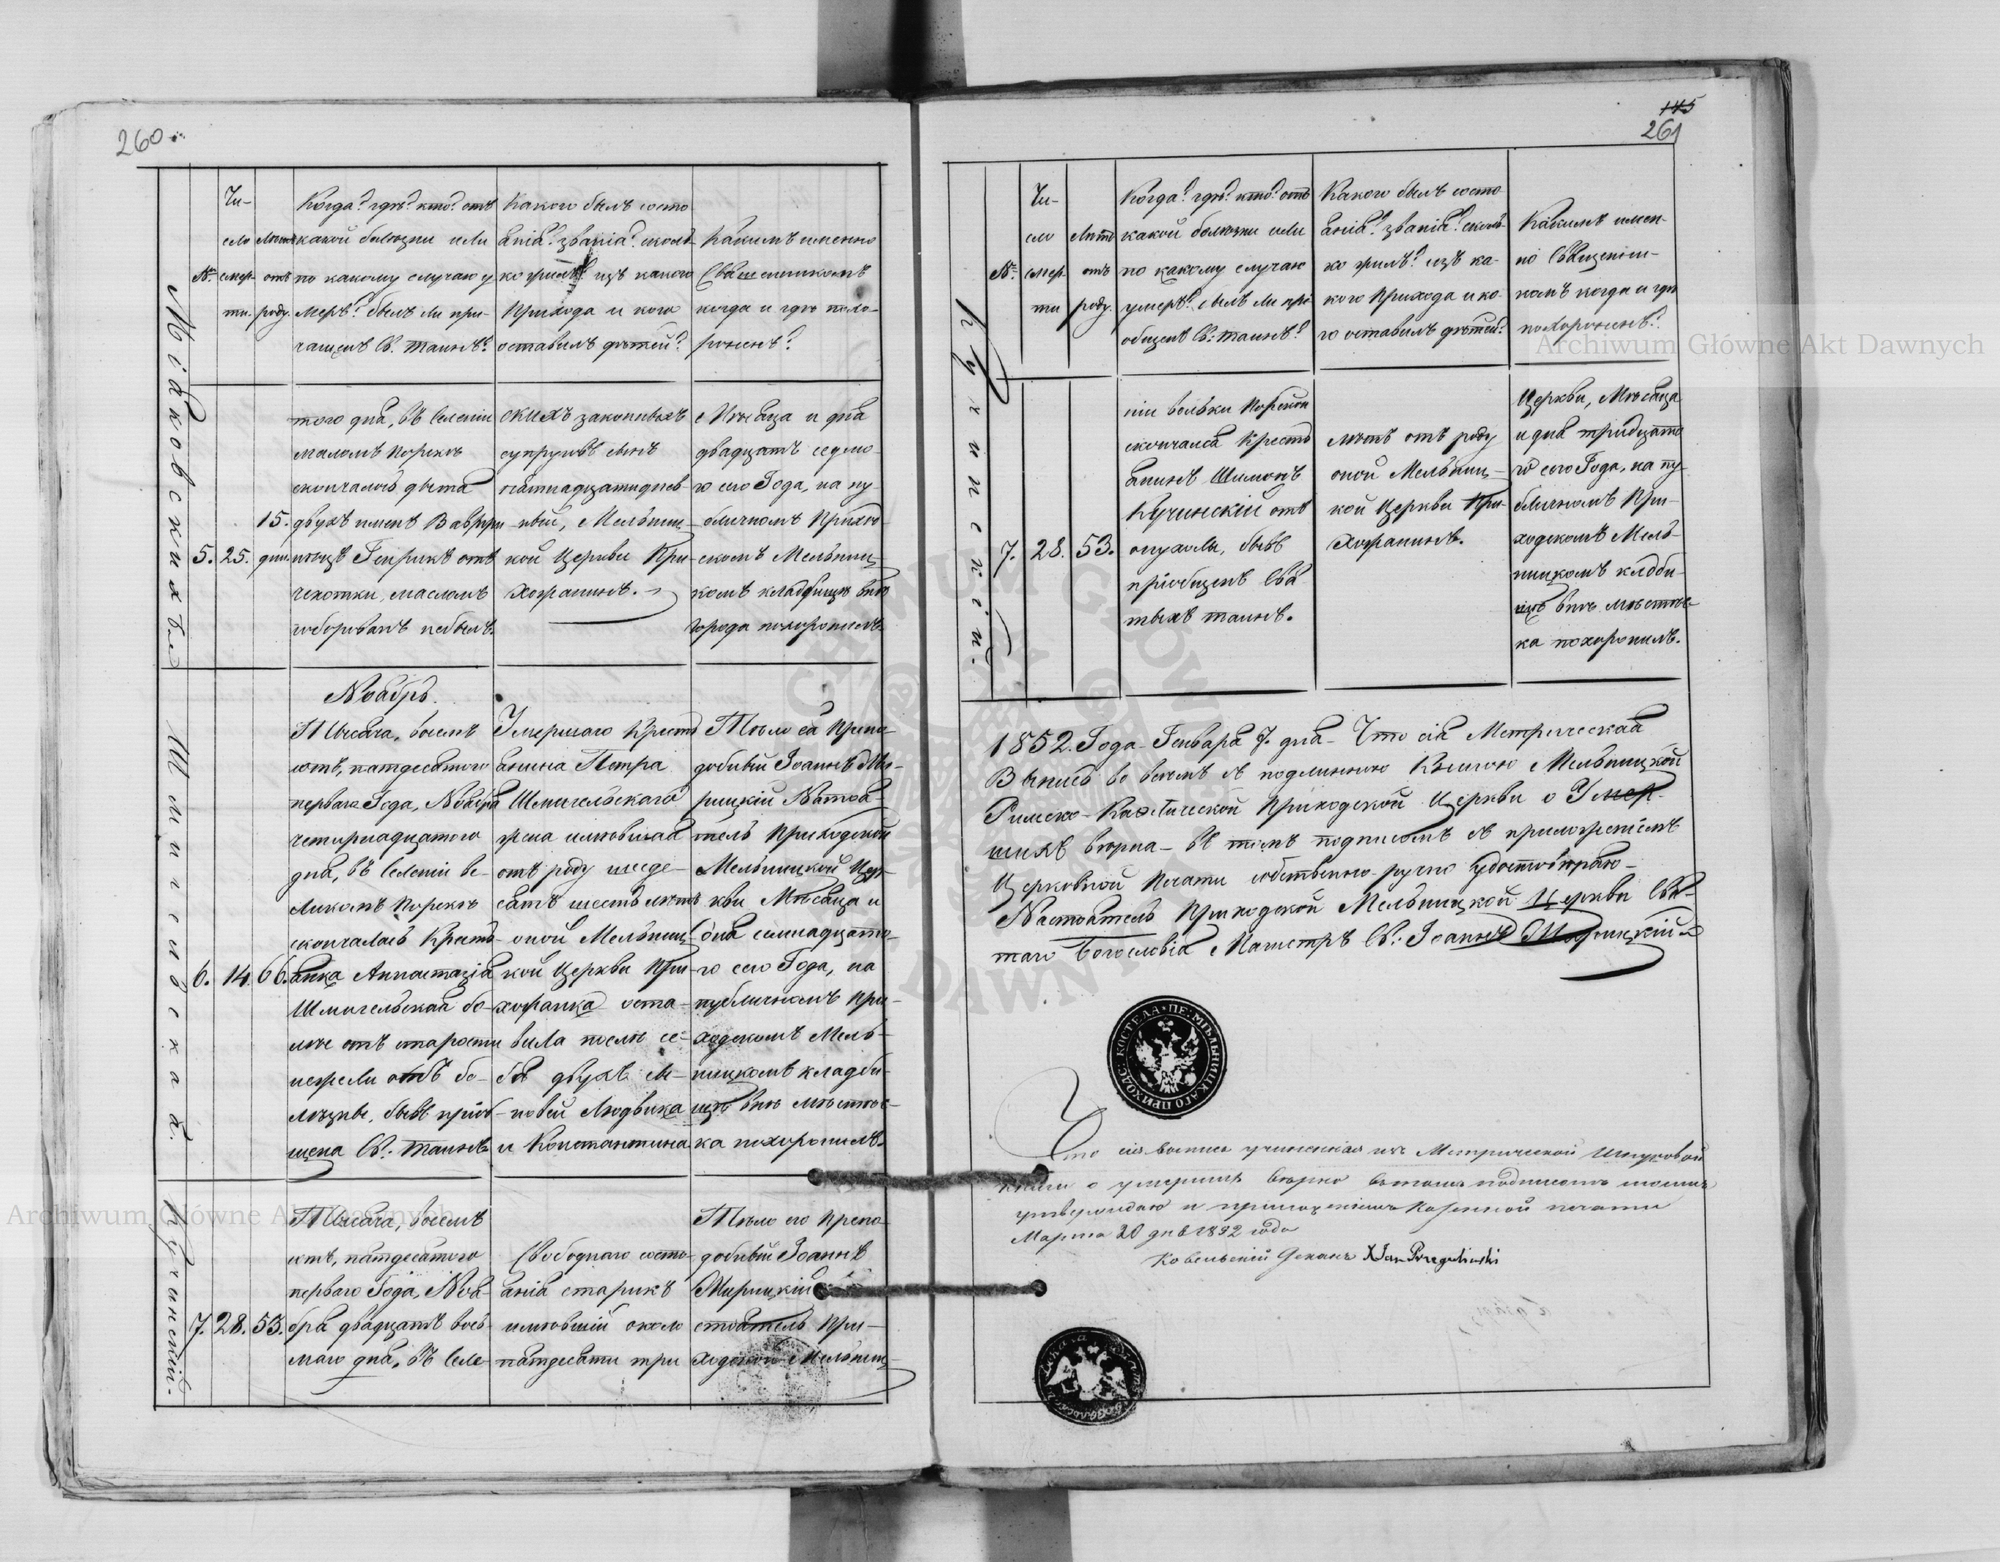 260
№
Чи-
сло
смер-
ти.
Лѣта
отъ
роду.
Когда? гдѣ? кто? отъ
какой болѣзни или
по какому случаю у
меръ? былъ ли при-
чащенъ Св. таинъ?
Какого былъ состо
янія? званія? сколь-
ко жилъ? изъ какого
Прихода и кого
оставилъ дѣтей?
Какимъ именно
Священникомъ
когда и гдѣ похо-
роненъ?
5.
25.
15.
дни.
того дня, въ селеніи
маломъ Порскѣ
скончалось дитя
двухъ именъ
Генрикъ отъ
чахотки, масломъ
соборованъ небылъ.
скихъ законныхъ
супруговъ сынъ
пятнадцатиднев-
ный, Мельниц-
кой Церкви При-
хожанинъ.
Мѣсяца и дня
двадцать седмо-
го сего Года, на пу-
бличномъ Приход-
скомъ Мельниц-
комъ кладбищѣ внѣ
города похоронилъ.
Шмигельская.
6.
14.
66.
Ноябрь.
Тысяча, восемь
сотъ, пятдесятого
перваго Года, Ноября
четырнадцатого
дня, въ селеніи ве-
ликомъ Порскѣ
скончалась Кресть-
янка Анастазія
Шмигельская бо-
лѣе отъ старости
нежели отъ бо-
лѣзни, бывъ пріоб-
щена Св. таинъ
Умершаго Кресть
янина Петра
Шмигельскаго
жена имѣвшая
отъ роду шесде-
сятъ шесть лѣтъ
оной Мельниц-
кой Церкви При-
хожанка оста-
вила послѣ се-
бя двухъ сы-
новей Людвика
и Константина
Тѣло ея Препо-
добный Іоаннъ Мо-
рицкій Настоя-
тель Приходской
Мельницкой Цер-
кви Мѣсяца и
дня семнадцато-
го сего Года, на
публичномъ При-
ходскомъ Мель-
ницкомъ кладби-
щѣ внѣ мѣстеч-
ка похоронилъ.
Кучинскій.
7.
28.
53.
Тысяча, восемь
сотъ, пятдесятого
перваго Года, Ноя-
бря двадцать вось-
маго дня, въ Селе-
Свободнаго состо-
янія старикъ
имѣвшій около
пятдесяти три
Тѣло его Препо-
добный Іоаннъ
Морицкій
стоятель При-
ходской Мельниц-
145
261
№
Чи-
сло
смер-
ти
Лѣта
отъ
роду.
Когда? гдѣ? кто? отъ
какой болѣзни или
по какому случаю
умеръ? былъ ли прі-
общенъ Св: таинъ?
Какого былъ состо
янія? званія? сколь-
ко жилъ? изъ ка-
кого Прихода и ко-
го оставилъ дѣтей?
Какимъ имен-
но Священни-
комъ когда и гдѣ
похороненъ?
Кучинскій.
7.
28.
53.
ніи вельки Порскѣ
скончался Кресть
янинъ Шимонъ
Кучинскій отъ
опухоли, бывъ
пріобщенъ Свя-
тыхъ таинъ.
лѣтъ отъ роду
оной Мельниц-
кой Церкви При-
хожанинъ.
Церкви, Мѣсяца
и дня тридцато
го сего Года, на пу-
бличномъ При-
ходскомъ Мель-
ницкомъ кладби-
щѣ внѣ мѣстеч-
ка похоронилъ.
1852. Года Генваря 7. дня Что сія Метрическая
Выпись во всемъ съ подлинною Книгою Мельницкой
Римско-Католической Приходской Церкви о Умер-
шихъ вѣрна въ томъ подписомъ съ приложеніемъ
Церковной Печати собственно ручно Удостовѣряю
Настоятель Приходской Мельницкой Церкви Свя-
таго Богословія Магистръ Св: Іоаннъ Морицкій
Что сія выпись учиненная изъ Метрической Шнуровой
книги о умершихъ вѣрно въ томъ подписомъ моимъ
утверждаю и приложеніемъ казенной печати
Марта 20 дня 1852 года
Ковельскій Деканъ X Jan Przegaliński
Archiwum Główne Akt Dawnych
Archiwum Główne Akt Dawnych